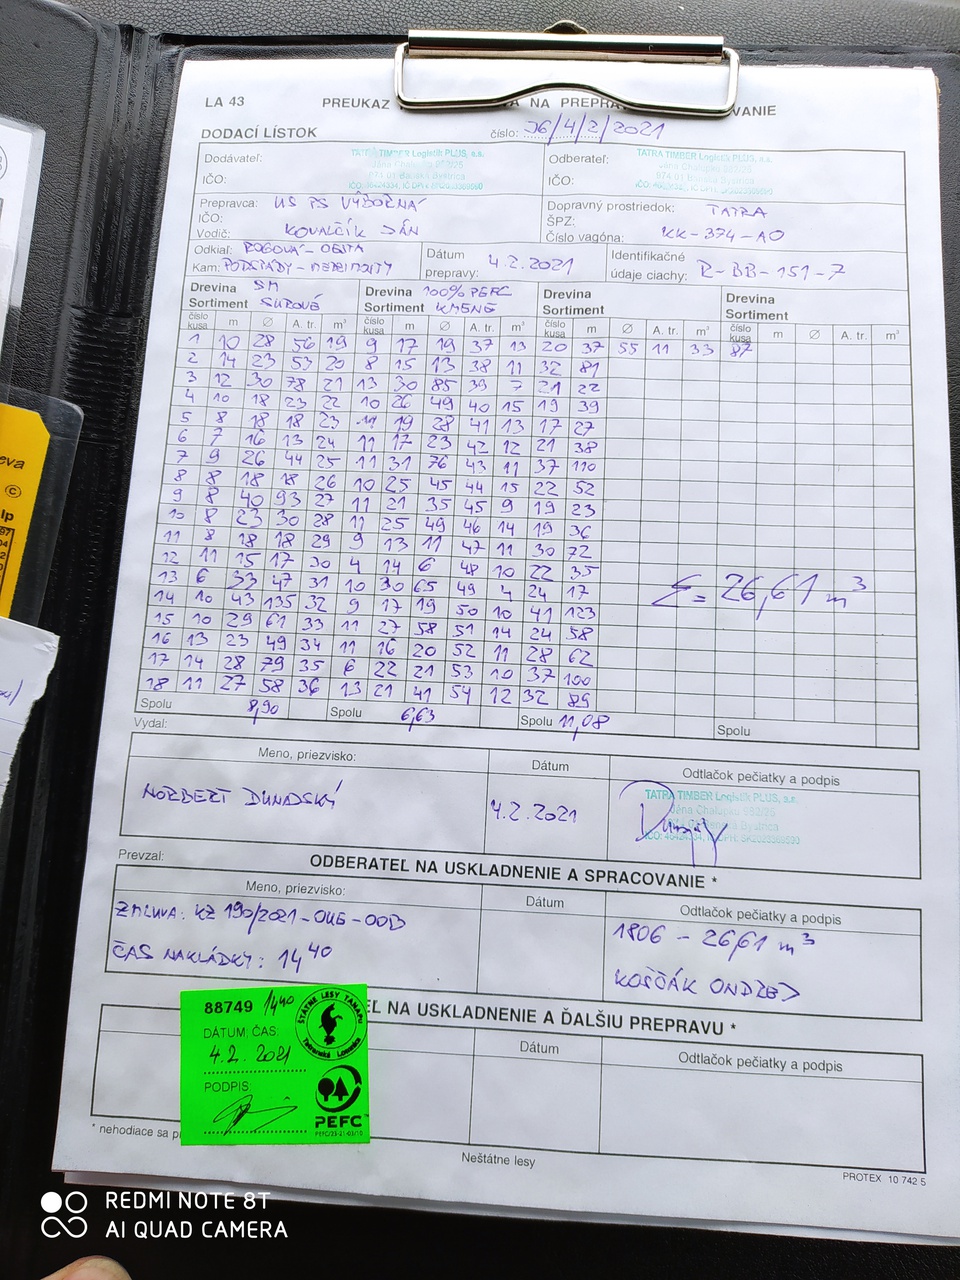 LA 43 PREUKAZ NA PREPRA VANIE
DODACÍ LÍSTOK číslo: 06/4/2/2021
Dodávateľ: TATRA TIMBER Logistik PLUS, a.s. Odberateľ: TATRA TIMBER Logistik PLUS, a.s.
IČO: IČO:
Prepravca: US PS VÝBORNÁ Dopravný prostriedok: TATRA
IČO: ŠPZ: KK-374-AO
Vodič: KOVALČÍK JÁN Číslo vagóna:
Odkiaľ: ROGOVÁ-OBITA Dátum Identifikačné
Kam: PODSPÁDY-MEDZIMOSTY prepravy: 4.2.2021 údaje ciachy: R-BB-151-7
Drevina SM Drevina 100% PEFC Drevina Drevina
Sortiment SUROVÉ Sortiment KMENE Sortiment Sortiment
číslo kusa m Ø A. tr. m³ číslo kusa m Ø A. tr. m³ číslo kusa m Ø A. tr. m³ číslo kusa m Ø A. tr. m³
1 10 28 56 19 9 17 19 37 13 20 37 55 11 33 87
2 14 23 53 20 8 15 13 38 11 32 81
3 12 30 78 21 13 30 85 39 7 21 22
4 10 18 23 22 10 26 49 40 15 19 39
5 8 18 18 23 11 19 28 41 13 17 27
6 7 16 13 24 11 17 23 42 12 21 38
7 9 26 44 25 11 31 76 43 11 37 110
8 8 18 18 26 10 25 45 44 15 22 52
9 8 40 93 27 11 21 35 45 9 19 23
10 8 23 30 28 11 25 49 46 14 19 36
11 8 18 18 29 9 13 11 47 11 30 72
12 11 15 17 30 4 14 6 48 10 22 35
13 6 33 47 31 10 30 65 49 4 24 17
14 10 43 135 32 9 17 19 50 10 41 123
15 10 29 61 33 11 27 58 51 14 24 58
16 13 23 49 34 11 16 20 52 11 28 62
17 14 28 79 35 6 22 21 53 10 37 100
18 11 27 58 36 13 21 41 54 12 32 89
Σ = 26,61 m³
Spolu 8,90 Spolu 6,63 Spolu 11,08 Spolu
Vydal:
Meno, priezvisko: Dátum Odtlačok pečiatky a podpis
NORBERT DUNAJSKÝ 4.2.2021 TATRA TIMBER Logistik PLUS, a.s.
Prevzal: ODBERATEĽ NA USKLADNENIE A SPRACOVANIE *
Meno, priezvisko: Dátum Odtlačok pečiatky a podpis
ZMLUVA: KZ 190/2021-OU6-OOB 1806 - 26,61 m³
ČAS NAKLÁDKY: 14 40 KOŠČÁK ONDREJ
EĽ NA USKLADNENIE A ĎALŠIU PREPRAVU *
Dátum Odtlačok pečiatky a podpis
88749 14 40
ŠTÁTNE LESY TANAPU
Tatranská Lomnica
DÁTUM, ČAS:
4.2. 2021
PODPIS:
PEFC
* nehodiace sa
Neštátne lesy
PROTEX 10 742 5
REDMI NOTE 8T
AI QUAD CAMERA